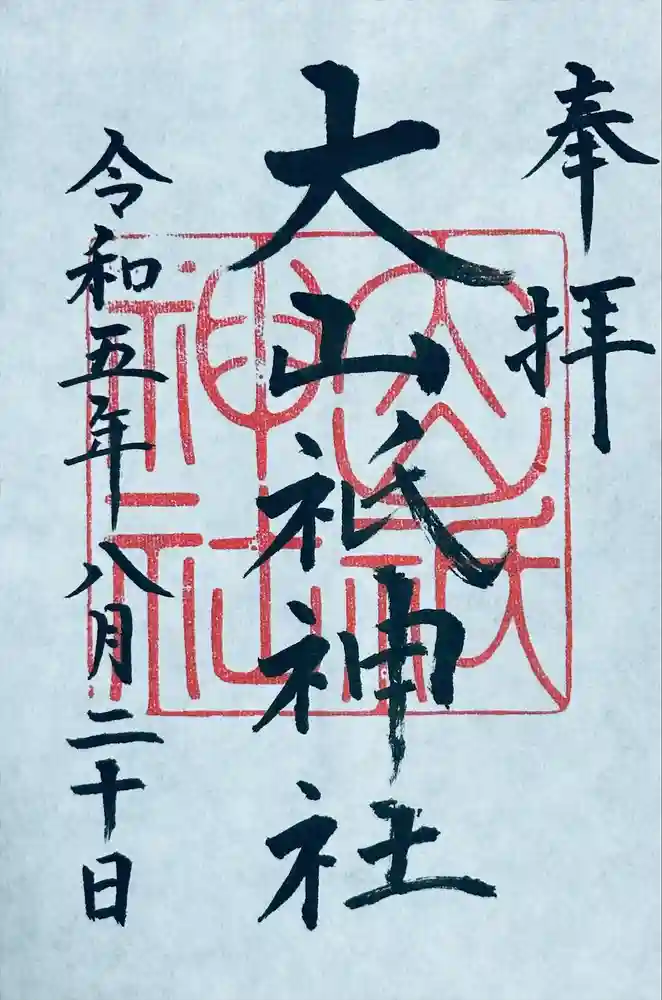 奉拝
大山祇神社
令和五年八月二十日
大山祇
神社